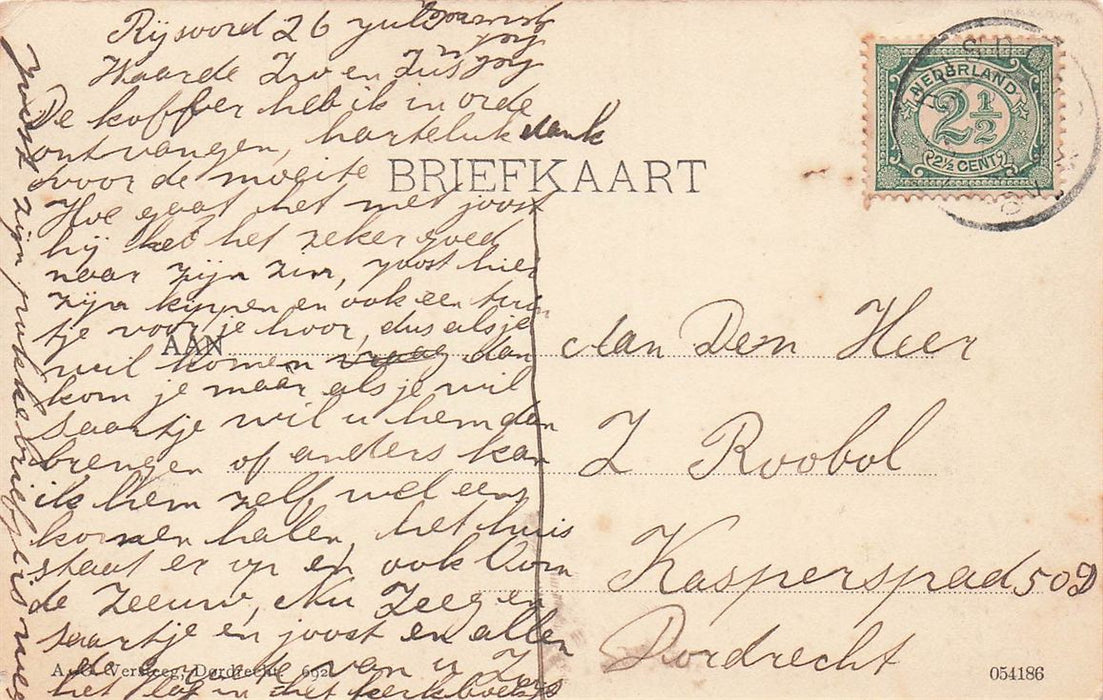 Rijsoord 26 july
Waarde Zw en Zus
De koffer heb ik in orde
ontvangen, harteluk dank
voor de moeite
Hoe gaat het met joost
hij heb het zeker goed
naar zijn zin, joost hier
zijn kippen en ook een tuin
tje voor je hoor, dus als je
wil komen dan
kom je maar als je wil
saartje wil u hem dan
brengen of anders kan
ik hem zelf wel een
komen halen, het huis
staat er op en ook Oom
de Zeeuw, Nu Zeeg en
saartje en joost en allen
de van u Zus
het in het
joost zijn is mee
BRIEFKAART
NEDERLAND
2½
2½ CENT
AAN
Aan Den Heer
Z Roobol
Kasperspad 50D
Dordrecht
Versteeg, Dordrecht 692
054186